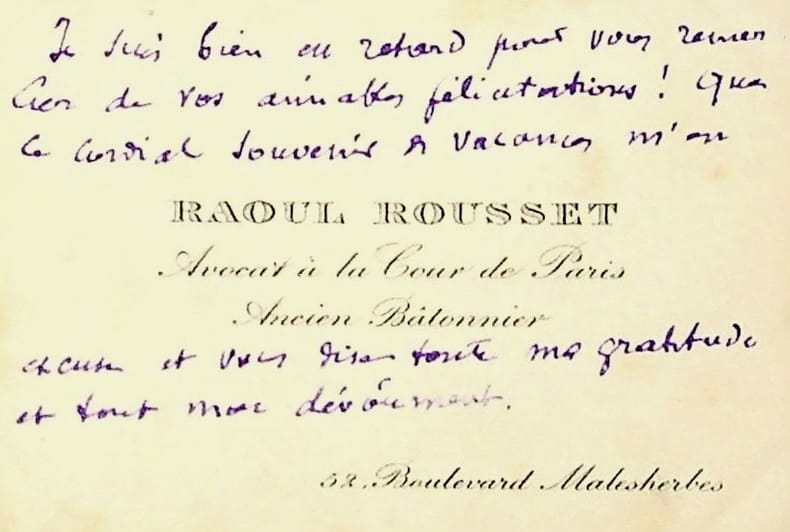 Je suis bien en retard pour vous remer
cier de vos aimables félicitations ! Que
ce cordial souvenir de vacances m'en
RAOUL ROUSSET
Avocat à la Cour de Paris
Ancien Bâtonnier
excuse et vous dise toute ma gratitude
et tout mon dévoûment.
52, Boulevard Malesherbes